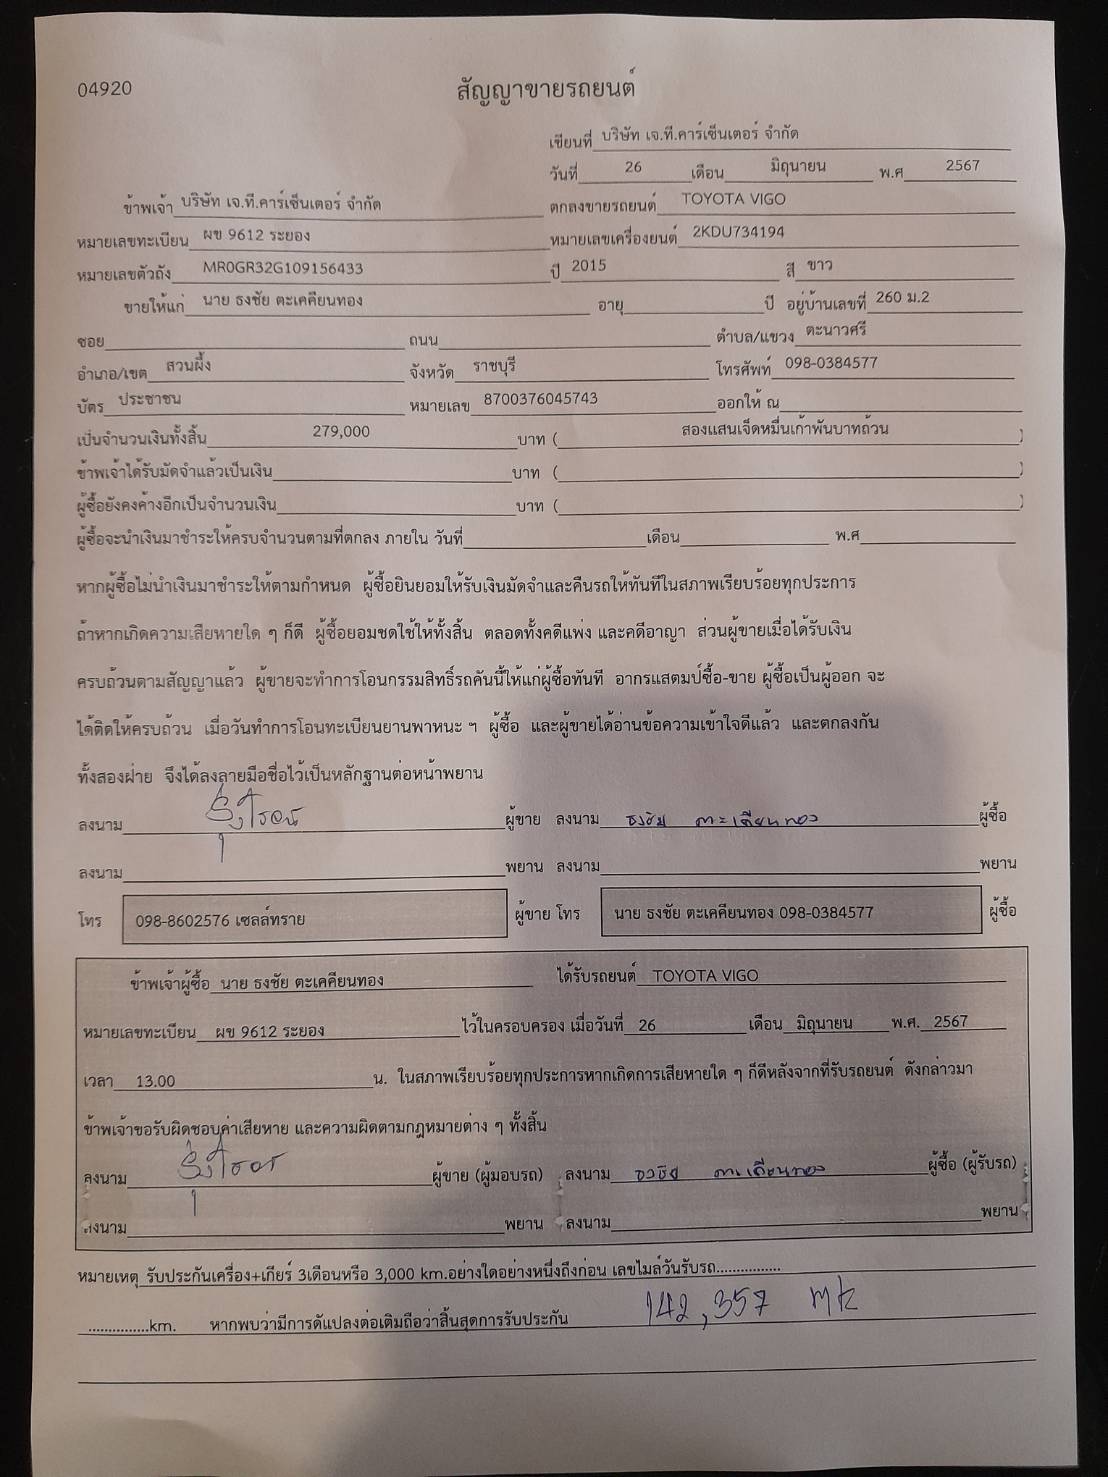 04920
สัญญาขายรถยนต์
เขียนที่ บริษัท เจ.ที.คาร์เซ็นเตอร์ จำกัด
วันที่ 26 เดือน มิถุนายน พ.ศ 2567
ข้าพเจ้า บริษัท เจ.ที.คาร์เซ็นเตอร์ จำกัด ตกลงขายรถยนต์ TOYOTA VIGO
หมายเลขทะเบียน ผข 9612 ระยอง หมายเลขเครื่องยนต์ 2KDU734194
หมายเลขตัวถัง MR0GR32G109156433 ปี 2015 สี ขาว
ขายให้แก่ นาย ธงชัย ตะเคคียนทอง อายุ ปี อยู่บ้านเลขที่ 260 ม.2
ซอย ถนน ตำบล/แขวง ตะนาวศรี
อำเภอ/เขต สวนผึ้ง จังหวัด ราชบุรี โทรศัพท์ 098-0384577
บัตร ประชาชน หมายเลข 8700376045743 ออกให้ ณ
เป็นจำนวนเงินทั้งสิ้น 279,000 บาท ( สองแสนเจ็ดหมื่นเก้าพันบาทถ้วน )
ข้าพเจ้าได้รับมัดจำแล้วเป็นเงิน บาท ( )
ผู้ซื้อยังคงค้างอีกเป็นจำนวนเงิน บาท ( )
ผู้ซื้อจะนำเงินมาชำระให้ครบจำนวนตามที่ตกลง ภายใน วันที่ เดือน พ.ศ
หากผู้ซื้อไม่นำเงินมาชำระให้ตามกำหนด ผู้ซื้อยินยอมให้รับเงินมัดจำและคืนรถให้ทันทีในสภาพเรียบร้อยทุกประการ
ถ้าหากเกิดความเสียหายใด ๆ ก็ดี ผู้ซื้อยอมชดใช้ให้ทั้งสิ้น ตลอดทั้งคดีแพ่ง และคดีอาญา ส่วนผู้ขายเมื่อได้รับเงิน
ครบถ้วนตามสัญญาแล้ว ผู้ขายจะทำการโอนกรรมสิทธิ์รถคันนี้ให้แก่ผู้ซื้อทันที อากรแสตมป์ซื้อ-ขาย ผู้ซื้อเป็นผู้ออก จะ
ได้ติดให้ครบถ้วน เมื่อวันทำการโอนทะเบียนยานพาหนะ ฯ ผู้ซื้อ และผู้ขายได้อ่านข้อความเข้าใจดีแล้ว และตกลงกัน
ทั้งสองฝ่าย จึงได้ลงลายมือชื่อไว้เป็นหลักฐานต่อหน้าพยาน
ลงนาม ผู้ขาย ลงนาม ธงชัย ตะเคียนทอง ผู้ซื้อ
ลงนาม พยาน ลงนาม พยาน
โทร 098-8602576 เซลล์ทราย ผู้ขาย โทร นาย ธงชัย ตะเคคียนทอง 098-0384577 ผู้ซื้อ
ข้าพเจ้าผู้ซื้อ นาย ธงชัย ตะเคคียนทอง ได้รับรถยนต์ TOYOTA VIGO
หมายเลขทะเบียน ผข 9612 ระยอง ไว้ในครอบครอง เมื่อวันที่ 26 เดือน มิถุนายน พ.ศ. 2567
เวลา 13.00 น. ในสภาพเรียบร้อยทุกประการหากเกิดการเสียหายใด ๆ ก็ดีหลังจากที่รับรถยนต์ ดังกล่าวมา
ข้าพเจ้าขอรับผิดชอบค่าเสียหาย และความผิดตามกฎหมายต่าง ๆ ทั้งสิ้น
ลงนาม ผู้ขาย (ผู้มอบรถ) ลงนาม ธงชัย ตะเคียนทอง ผู้ซื้อ (ผู้รับรถ)
ลงนาม พยาน ลงนาม พยาน
หมายเหตุ รับประกันเครื่อง+เกียร์ 3เดือนหรือ 3,000 km.อย่างใดอย่างหนึ่งถึงก่อน เลขไมล์วันรับรถ................
...............km. หากพบว่ามีการดัแปลงต่อเติมถือว่าสิ้นสุดการรับประกัน 142,357